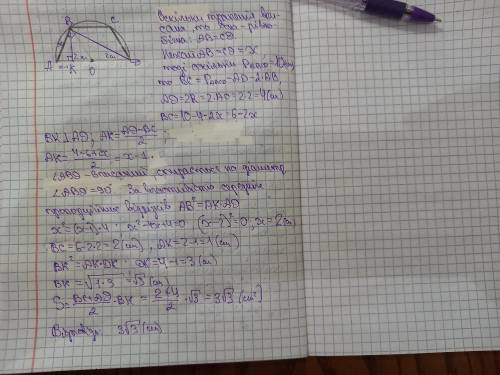 B C
A K O D
Оскільки трапеція впи-
сана, то вона - рівно-
бічна: AB=CD.
Нехай AB=CD=x
тоді оскільки P_ABCD=10см,
то BC=P_ABCD-AD-2·AB
AD=2R=2·AO=2·2=4(см)
BC=10-4-2x=6-2x
BK⊥AD; AK=(AD-BC)/2
AK=(4-6+2x)/2=x-1.
∠ABD - вписаний, спирається на діаметр
∠ABD=90°. За властивістю середніх
пропорційних відрізків AB²=AK·AD
x²=(x-1)·4; x²-4x+4=0; (x-2)²=0; x=2(см)
BC=6-2·2=2(см), AK=2-1=1(см)
BK²=AK·DK; DK=4-1=3(см)
BK=√1·3=√3(см)
S=(BC+AD)/2·BK=(2+4)/2·√3=3√3(см²)
Відповідь: 3√3(см)